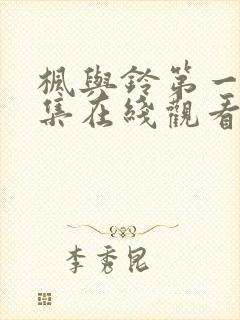 楓與鈴第一
集在綫觀看
李秀昆